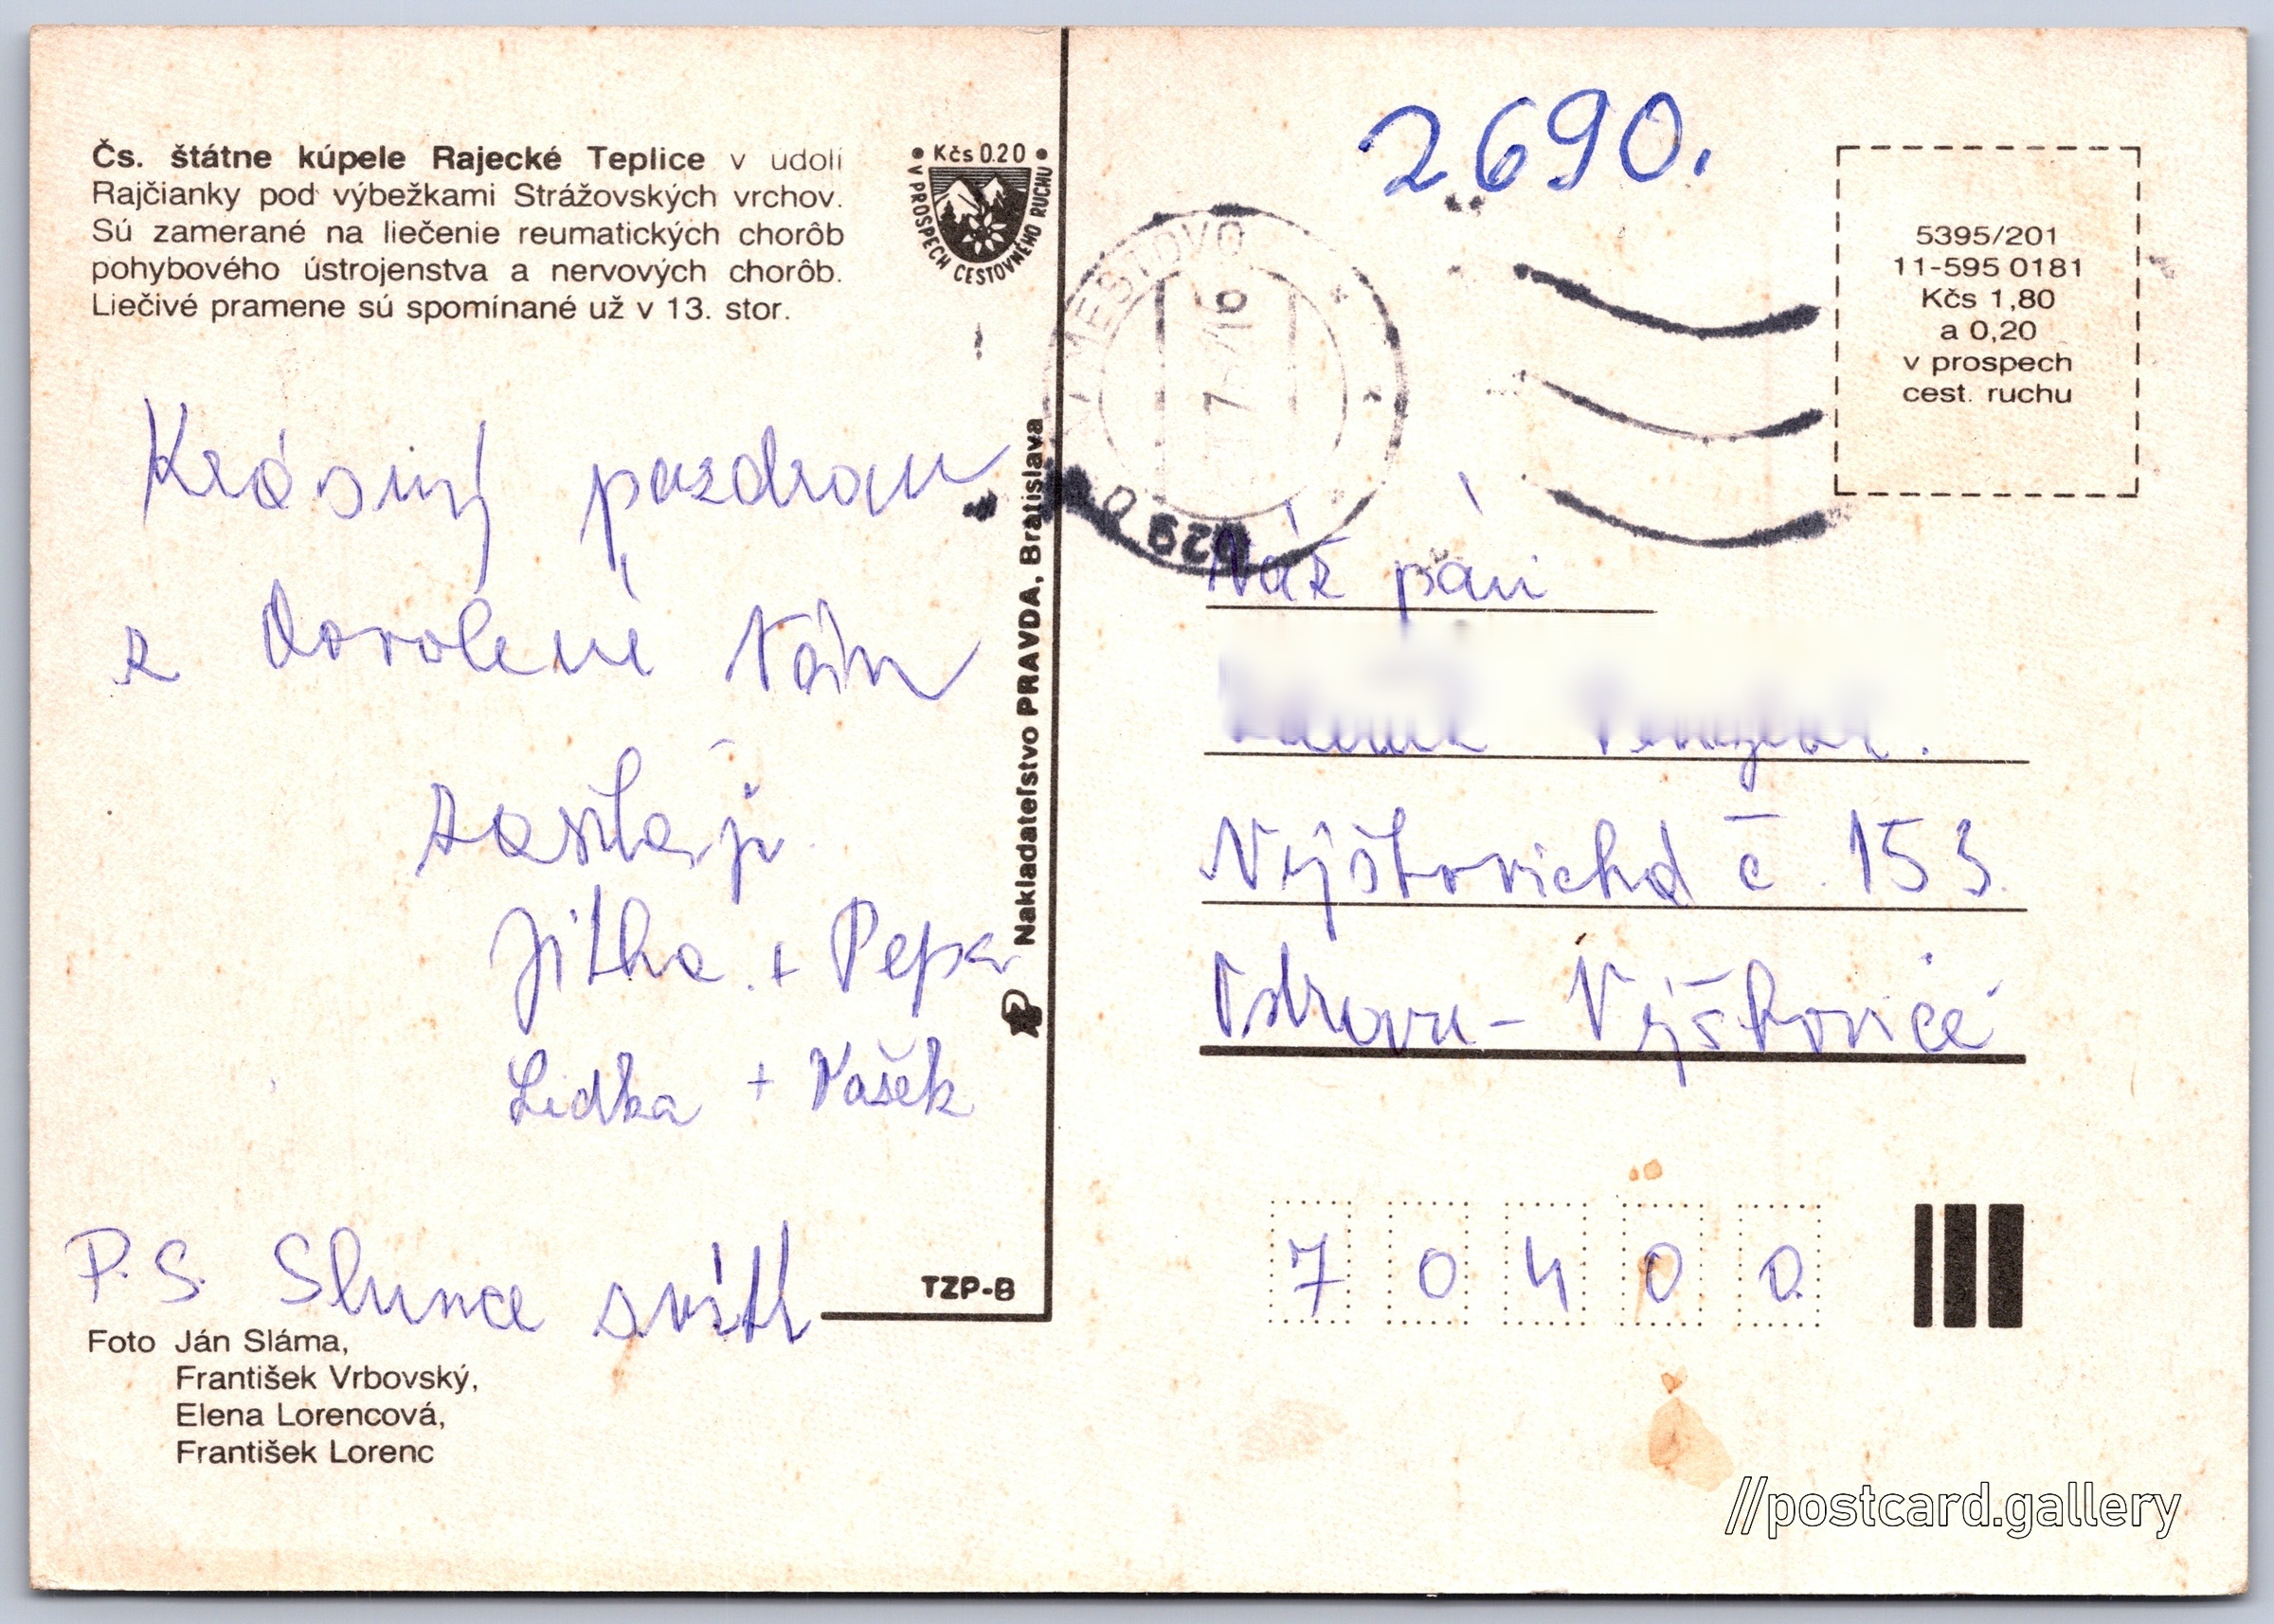 Čs. štátne kúpele Rajecké Teplice v údolí
Rajčianky pod výbežkami Strážovských vrchov.
Sú zamerané na liečenie reumatických chorôb
pohybového ústrojenstva a nervových chorôb.
Liečivé pramene sú spomínané už v 13. stor.
• Kčs 0.20 •
V PROSPECH CESTOVNÉHO RUCHU
Krásný pozdrav
z dovolené Vám
zasílají
Jitka + Pepa
Lidka + Vašek
P.S. Slunce svítí
Foto Ján Sláma,
František Vrbovský,
Elena Lorencová,
František Lorenc
TZP-B
Nakladateľstvo PRAVDA, Bratislava
2690.
MESTOVO
029 0
5395/201
11-595 0181
Kčs 1,80
a 0,20
v prospech
cest. ruchu
Váž páni
č. 153
Výškovice
70400
//postcard.gallery